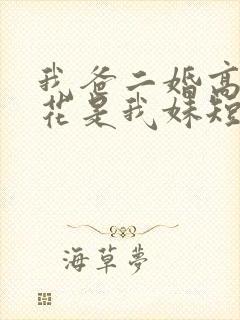 我爸二婚高
花是我妹短
海草夢